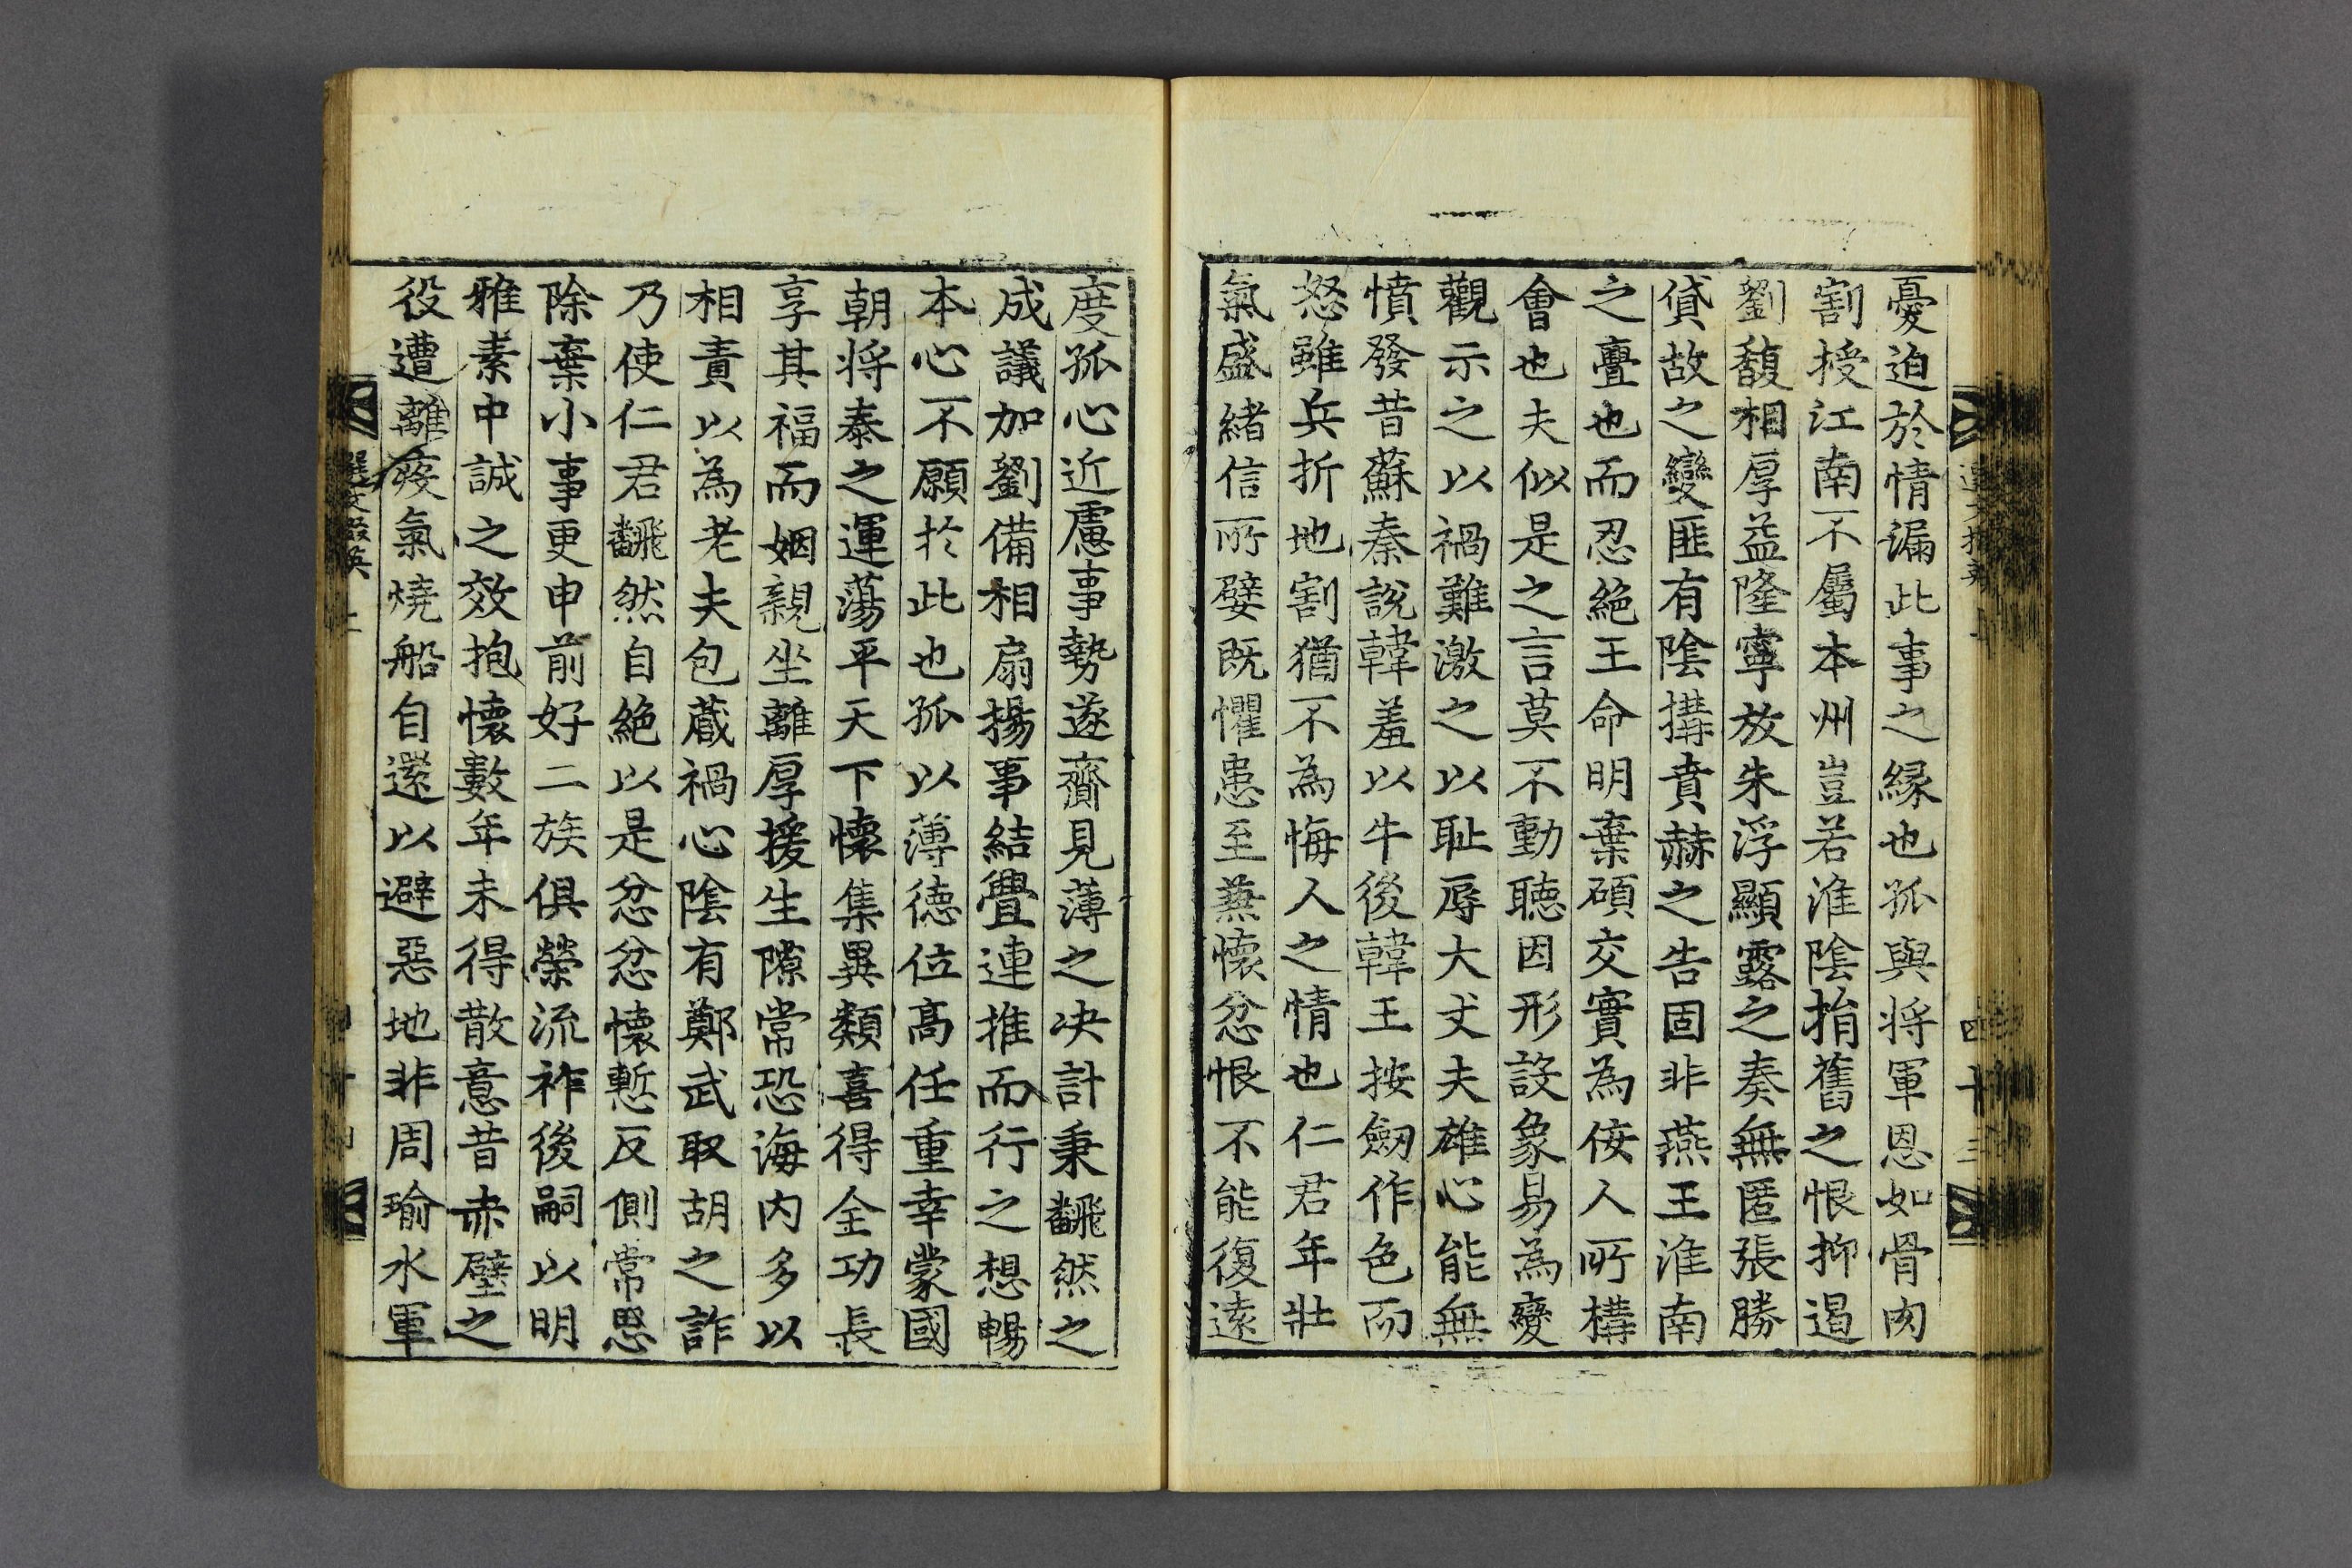 憂迫於情漏此事之縁也孤與将軍恩如骨肉
割授江南不屬本州豈若淮陰捐舊之恨抑遏
劉馥相厚益隆寧放朱浮顯露之奏無匿張勝
貸故之變匪有陰搆賁赫之告固非燕王淮南
之亹也而忍絶王命明棄碩交實為佞人所構
會也夫似是之言莫不動聽因形設象易為變
觀示之以禍難激之以耻辱大丈夫雄心能無
憤發昔蘇秦說韓羞以牛後韓王按劒作色而
怒雖兵折地割猶不為悔人之情也仁君年壯
氣盛緒信所嬖既懼患至兼懷忿恨不能復遠
度孤心近慮事勢遂齎見薄之决計秉飜然之
成議加劉備相扇揚事結舋連推而行之想暢
本心不願於此也孤以薄德位高任重幸蒙國
朝将泰之運蕩平天下懷集異類喜得全功長
享其福而姻親坐離厚援生隙常恐海内多以
相責以為老夫包蔵禍心陰有鄭武取胡之詐
乃使仁君飜然自絶以是忿忿懷慙反側常思
除棄小事更申前好二族俱榮流祚後嗣以明
雅素中誠之效抱懷數年未得散意昔赤壁之
役遭離疫氣燒船自還以避惡地非周瑜水軍